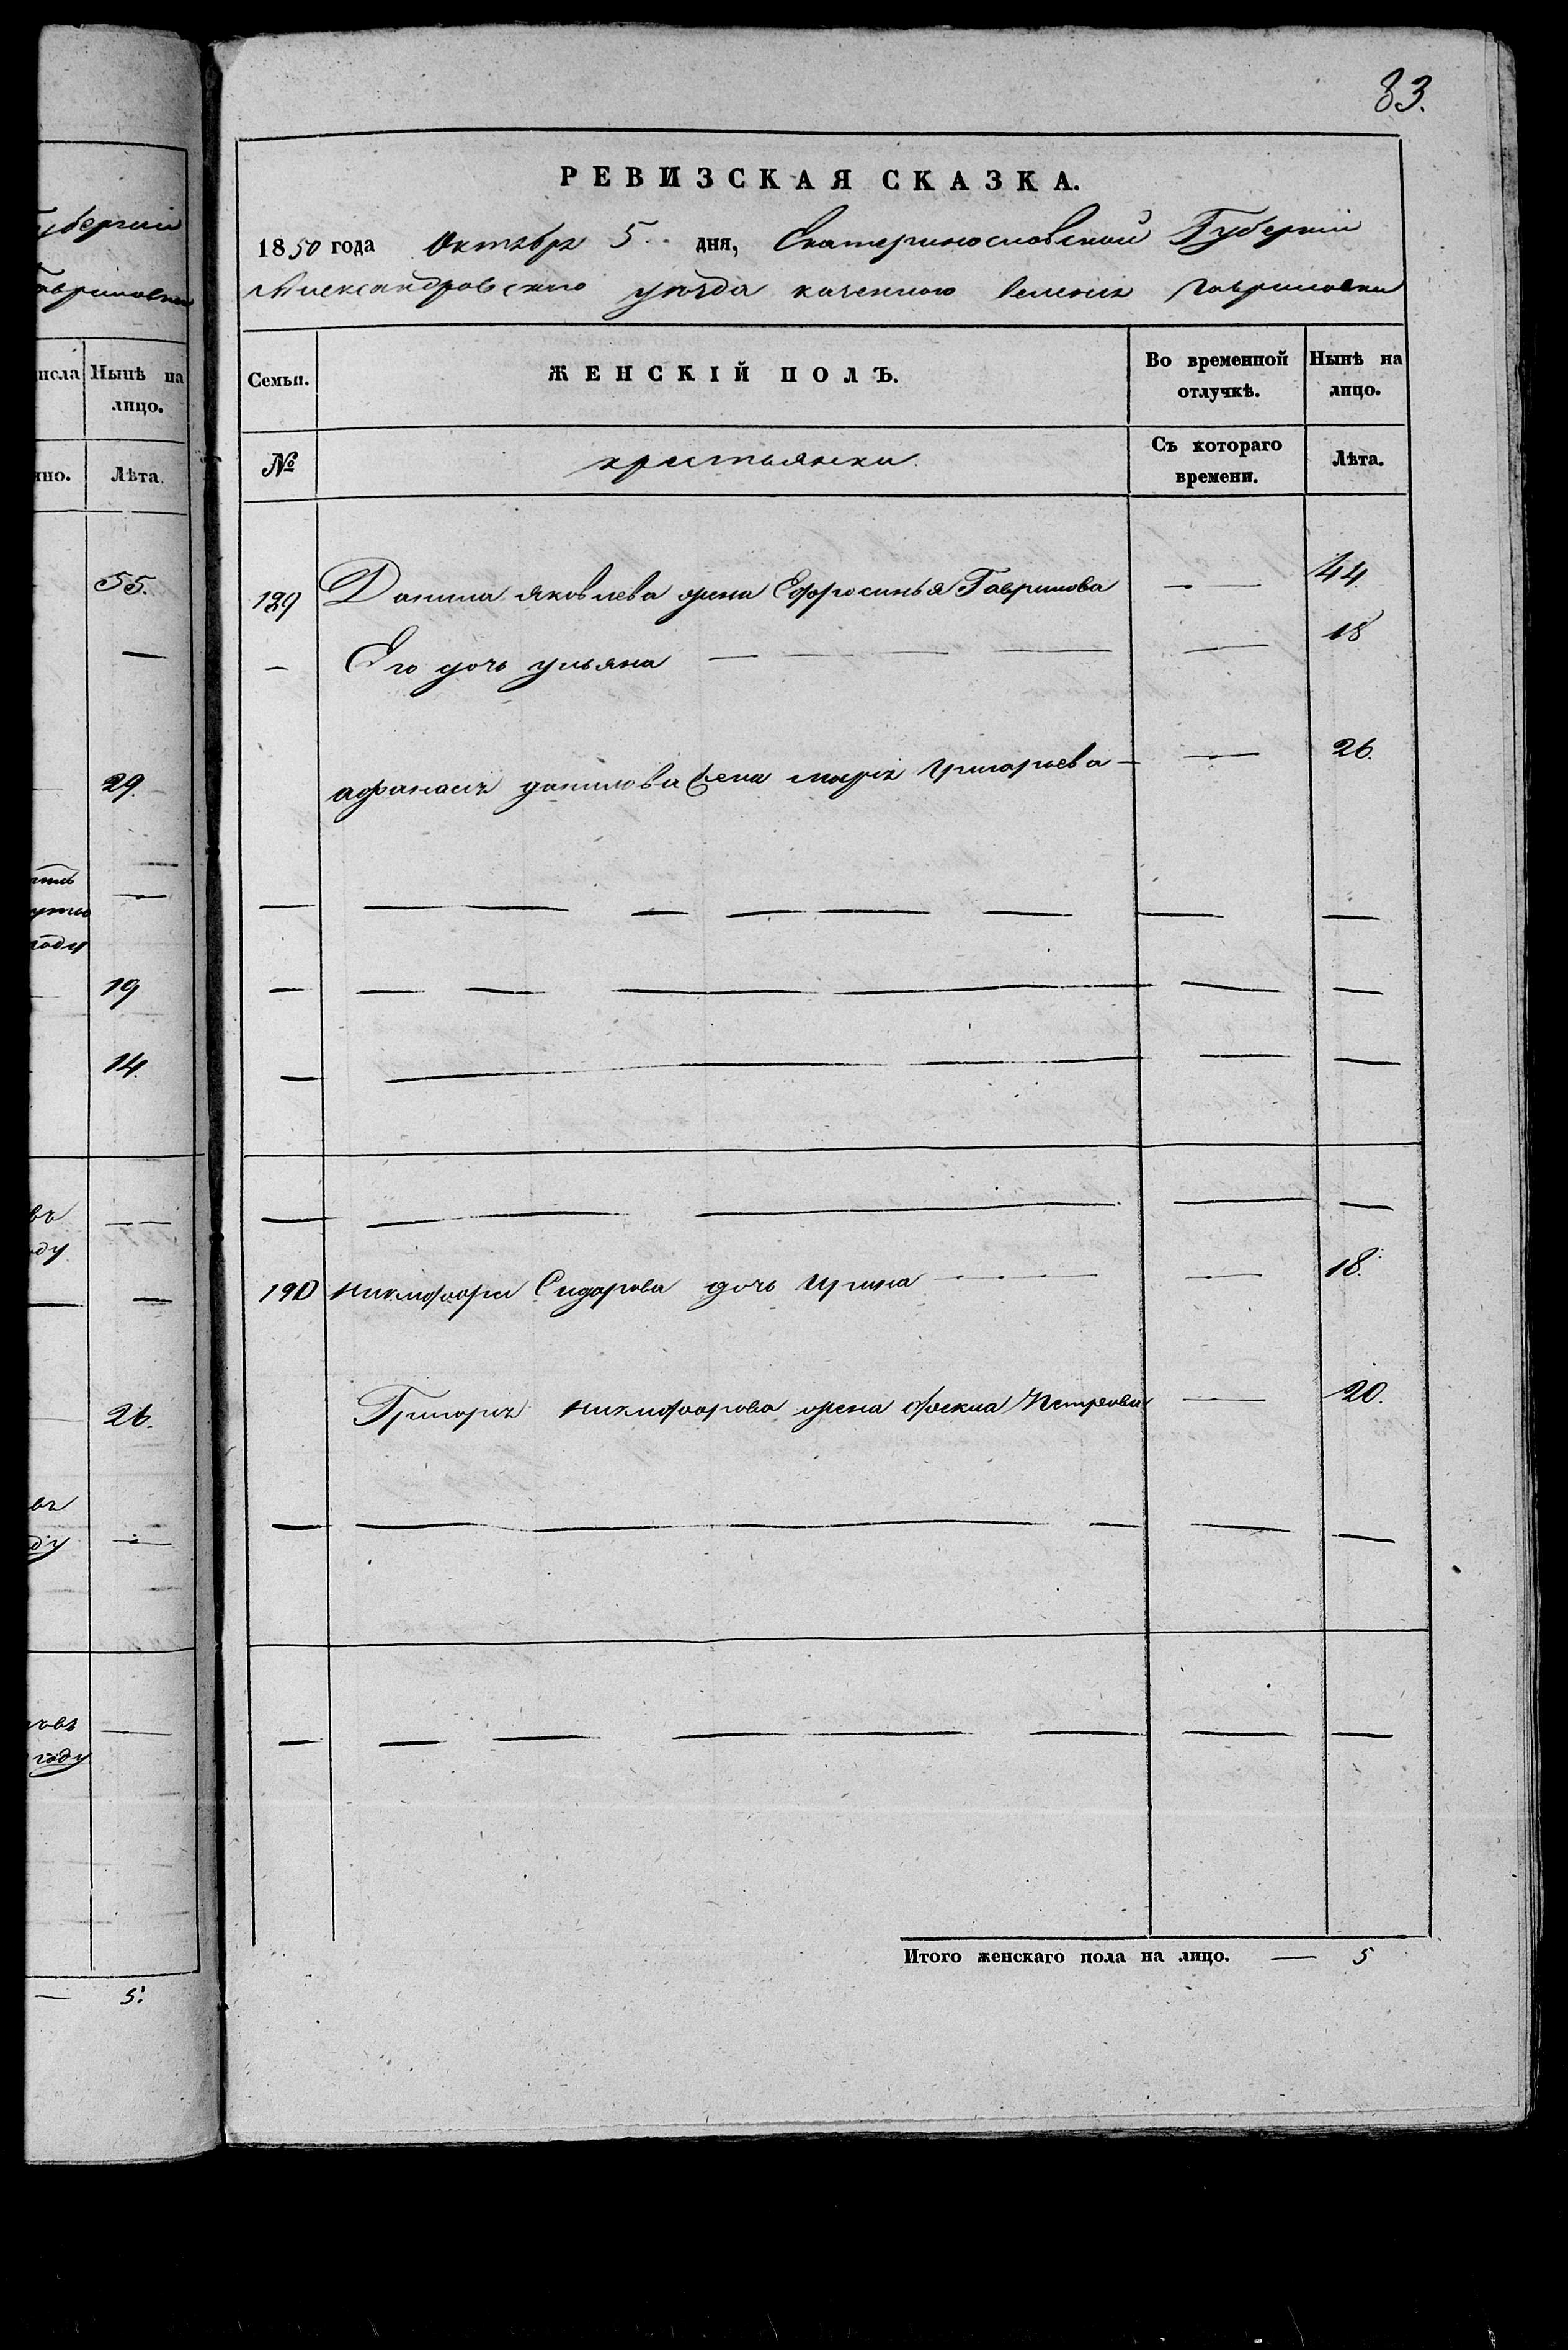 уберніи
авриловки
исла Нынѣ на
лицо.
нно. Лѣта.
55.
29.
уто
году
19
14.
въ
оду
26.
въ
ду
году
5.
83.
РЕВИЗСКАЯ СКАЗКА.
1850 года Октября 5 дня, Екатеринославской Губерніи
Александровскаго уѣзда казеннаго селенія Гавриловки
Семьи. ЖЕНСКІЙ ПОЛЪ. Во временной Нынѣ на
отлучкѣ. лицо.
№ крестьянки. Съ котораго Лѣта.
времени.
129 Данила яковлева жена Ефросинья Гаврилова — 44.
— Его дочь ульяна — 18
афанасія данилова жена марія Григорьева — 26.
190 никифора Сидорова дочь Ирина — 18.
Григорія никифорова жена фекла Петрова — 20.
Итого женскаго пола на лицо. — 5